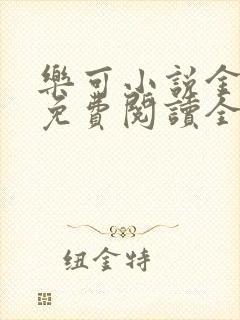 樂可小說全
免費閱讀全
纽金特